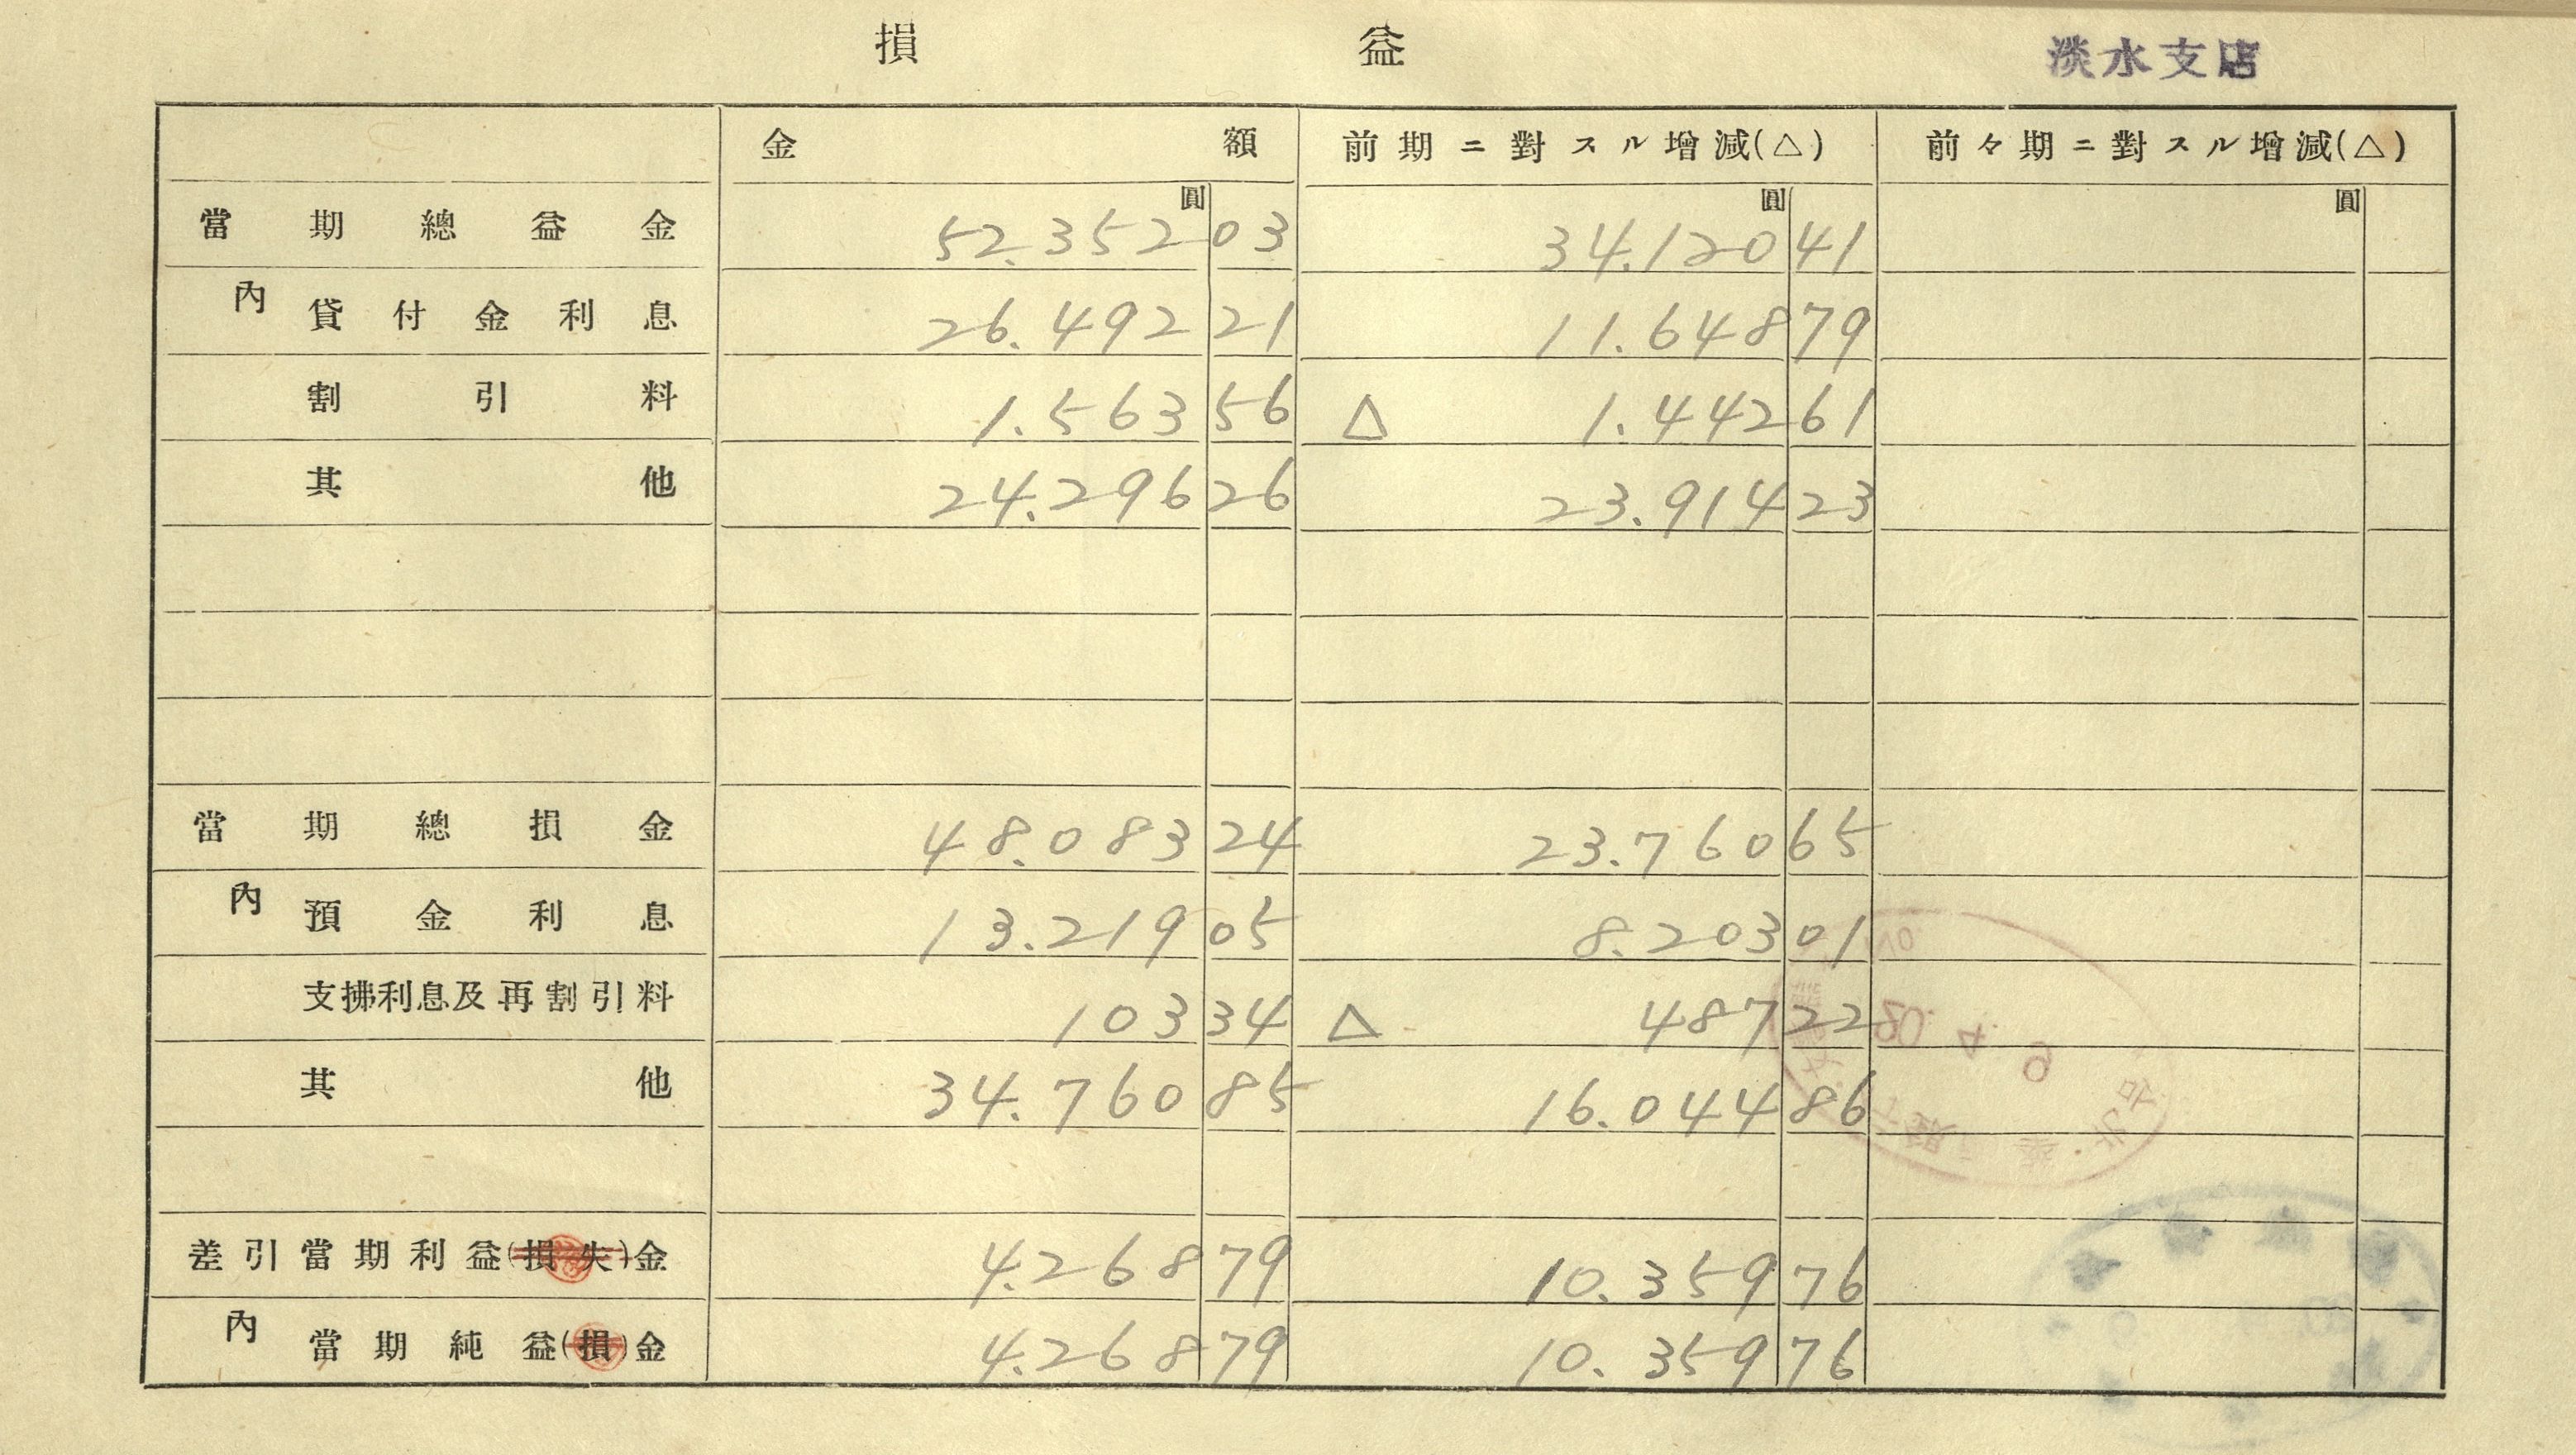 損益
淡水支店
金額 前期ニ對スル增減(△) 前々期ニ對スル增減(△)
圓 圓 圓
當期總益金 52.352 03 34.120 41
內 貸付金利息 26.492 21 11.648 79
割引料 1.563 56 △ 1.442 61
其他 24.296 26 23.914 23
當期總損金 48.083 24 23.760 65
內 預金利息 13.219 05 8.203 01
支拂利息及再割引料 103 34 △ 487 22
其他 34.760 85 16.044 86
差引當期利益(損失)金 4.268 79 10.359 76
內 當期純益(損)金 4.268 79 10.359 76